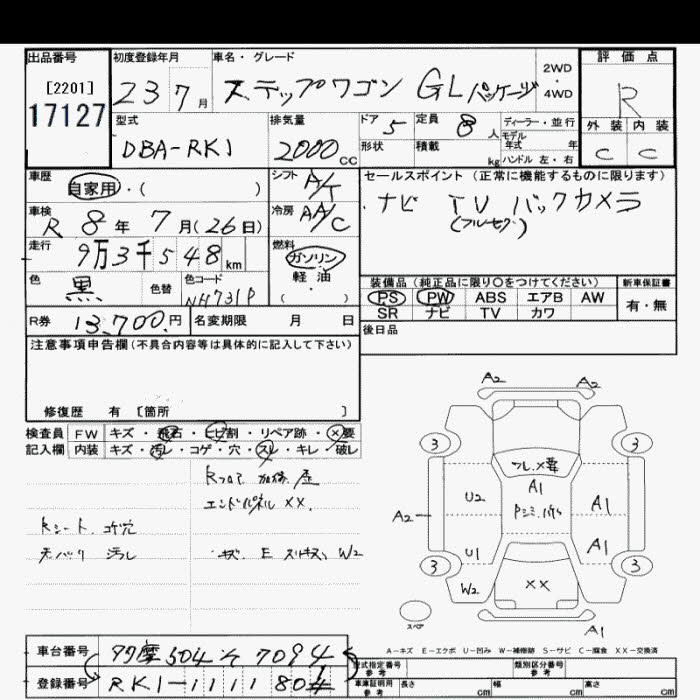 出品番号
[2201]
17127
初度登録年月
23 7月
車名・グレード
ステップワゴン GLパッケージ
2WD
・
4WD
評価点
R
外装 内装
C C
型式
DBA-RK1
排気量
2000cc
ドア
5
定員
8人
形状
積載
kg
ディーラー・並行
モデル
年式 年
ハンドル 左・右
車歴
自家用・( )
シフト
A/T
車検
R 8年 7月(26日)
冷房
AA/C
走行
9万3千548km
燃料
ガソリン
軽油
・
( )
色
黒
色替
色コード
NH731P
R券
13,700円
名変期限 月 日
セールスポイント(正常に機能するものに限ります)
ナビ TV バックカメラ
(フルセグ)
装備品(純正品に限り○をつけてください)
PS PW ABS エアB AW
SR ナビ TV カワ
新車保証書
有・無
後日品
注意事項申告欄(不具合内容等は具体的に記入して下さい)
修復歴 有 [箇所 ]
検査員
記入欄
FW キズ・飛石・ヒビ割・リペア跡・×要
内装 キズ・汚レ・コゲ・穴・スレ・キレ・破レ
Rフロア 加修 歴
エンドパネル ××.
Rシート コゲ穴
天バリ 汚レ
キズ E スリキズ W2
A2 A2
3 3
フレ.×要
U2 A1 A1
A2
U1 A1
3 3
W2 ××
スペア
A1
A-キズ E-エクボ U-凹み W-補修跡 S-サビ C-腐食 XX-交換済
車台番号
多摩504そ7094
登録番号
RK1-1111804
型式指定番号
参考
類別区分番号
参考
車庫証明用
参考
長さ cm 幅 cm 高さ cm